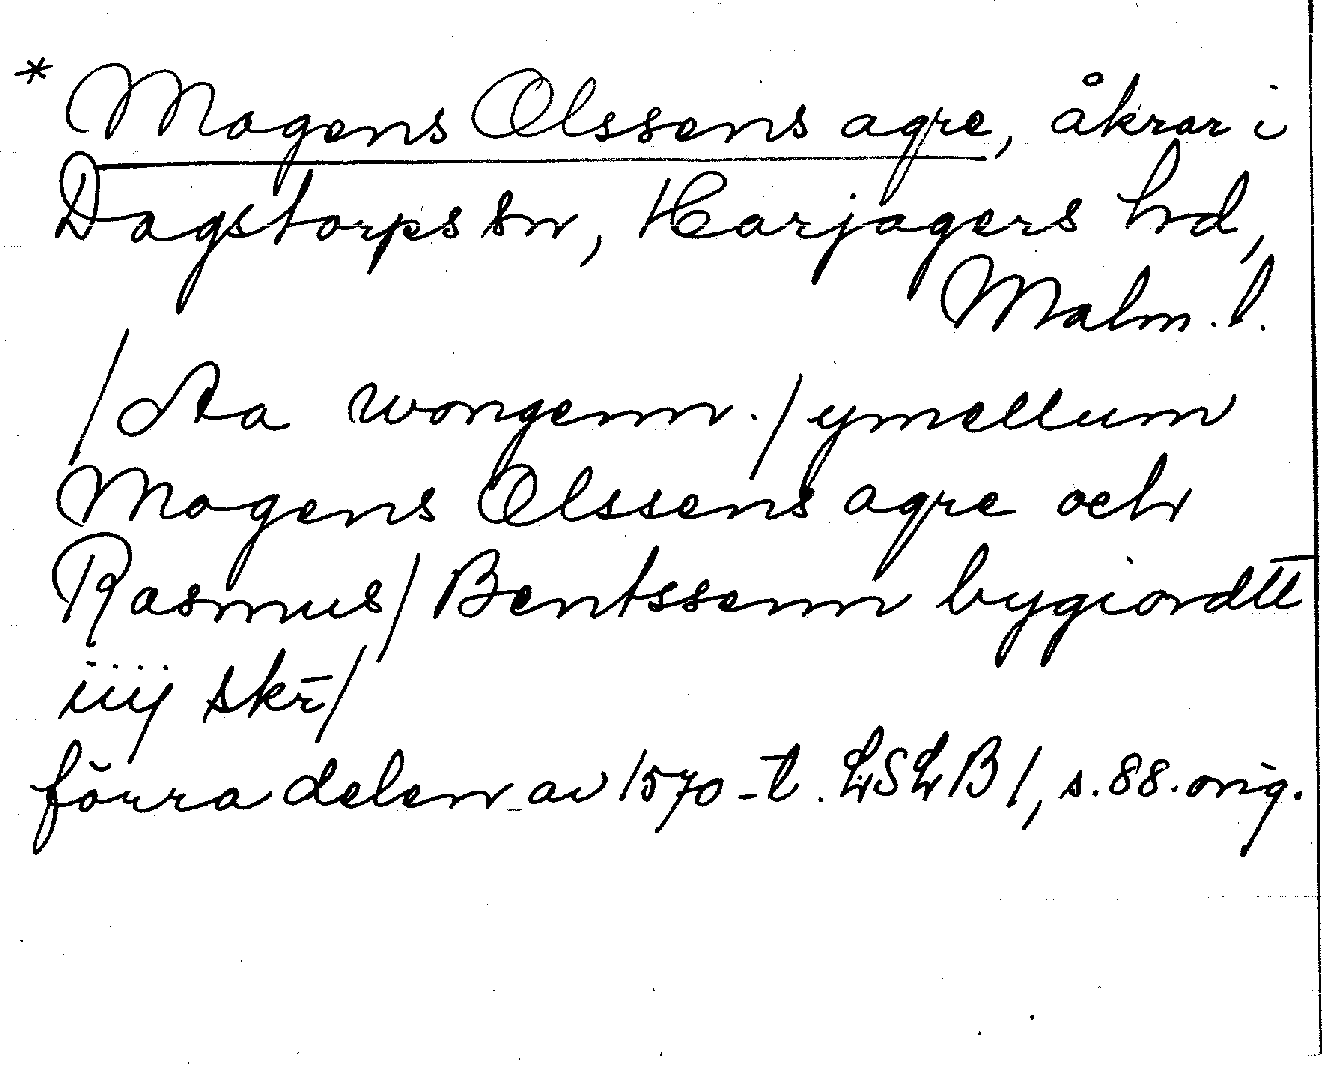 * Mogens Olssens agre, åkrar i
Dagstorps sn, Harjagers hd,
Malm. l.
/Aa wongenn./ ymellum
Mogens Olssens agre och
Rasmus/ Bentssenn bygiordtt
iiij skr̄/
förra delen av 1570-t. LSLB 1, s. 88. orig.